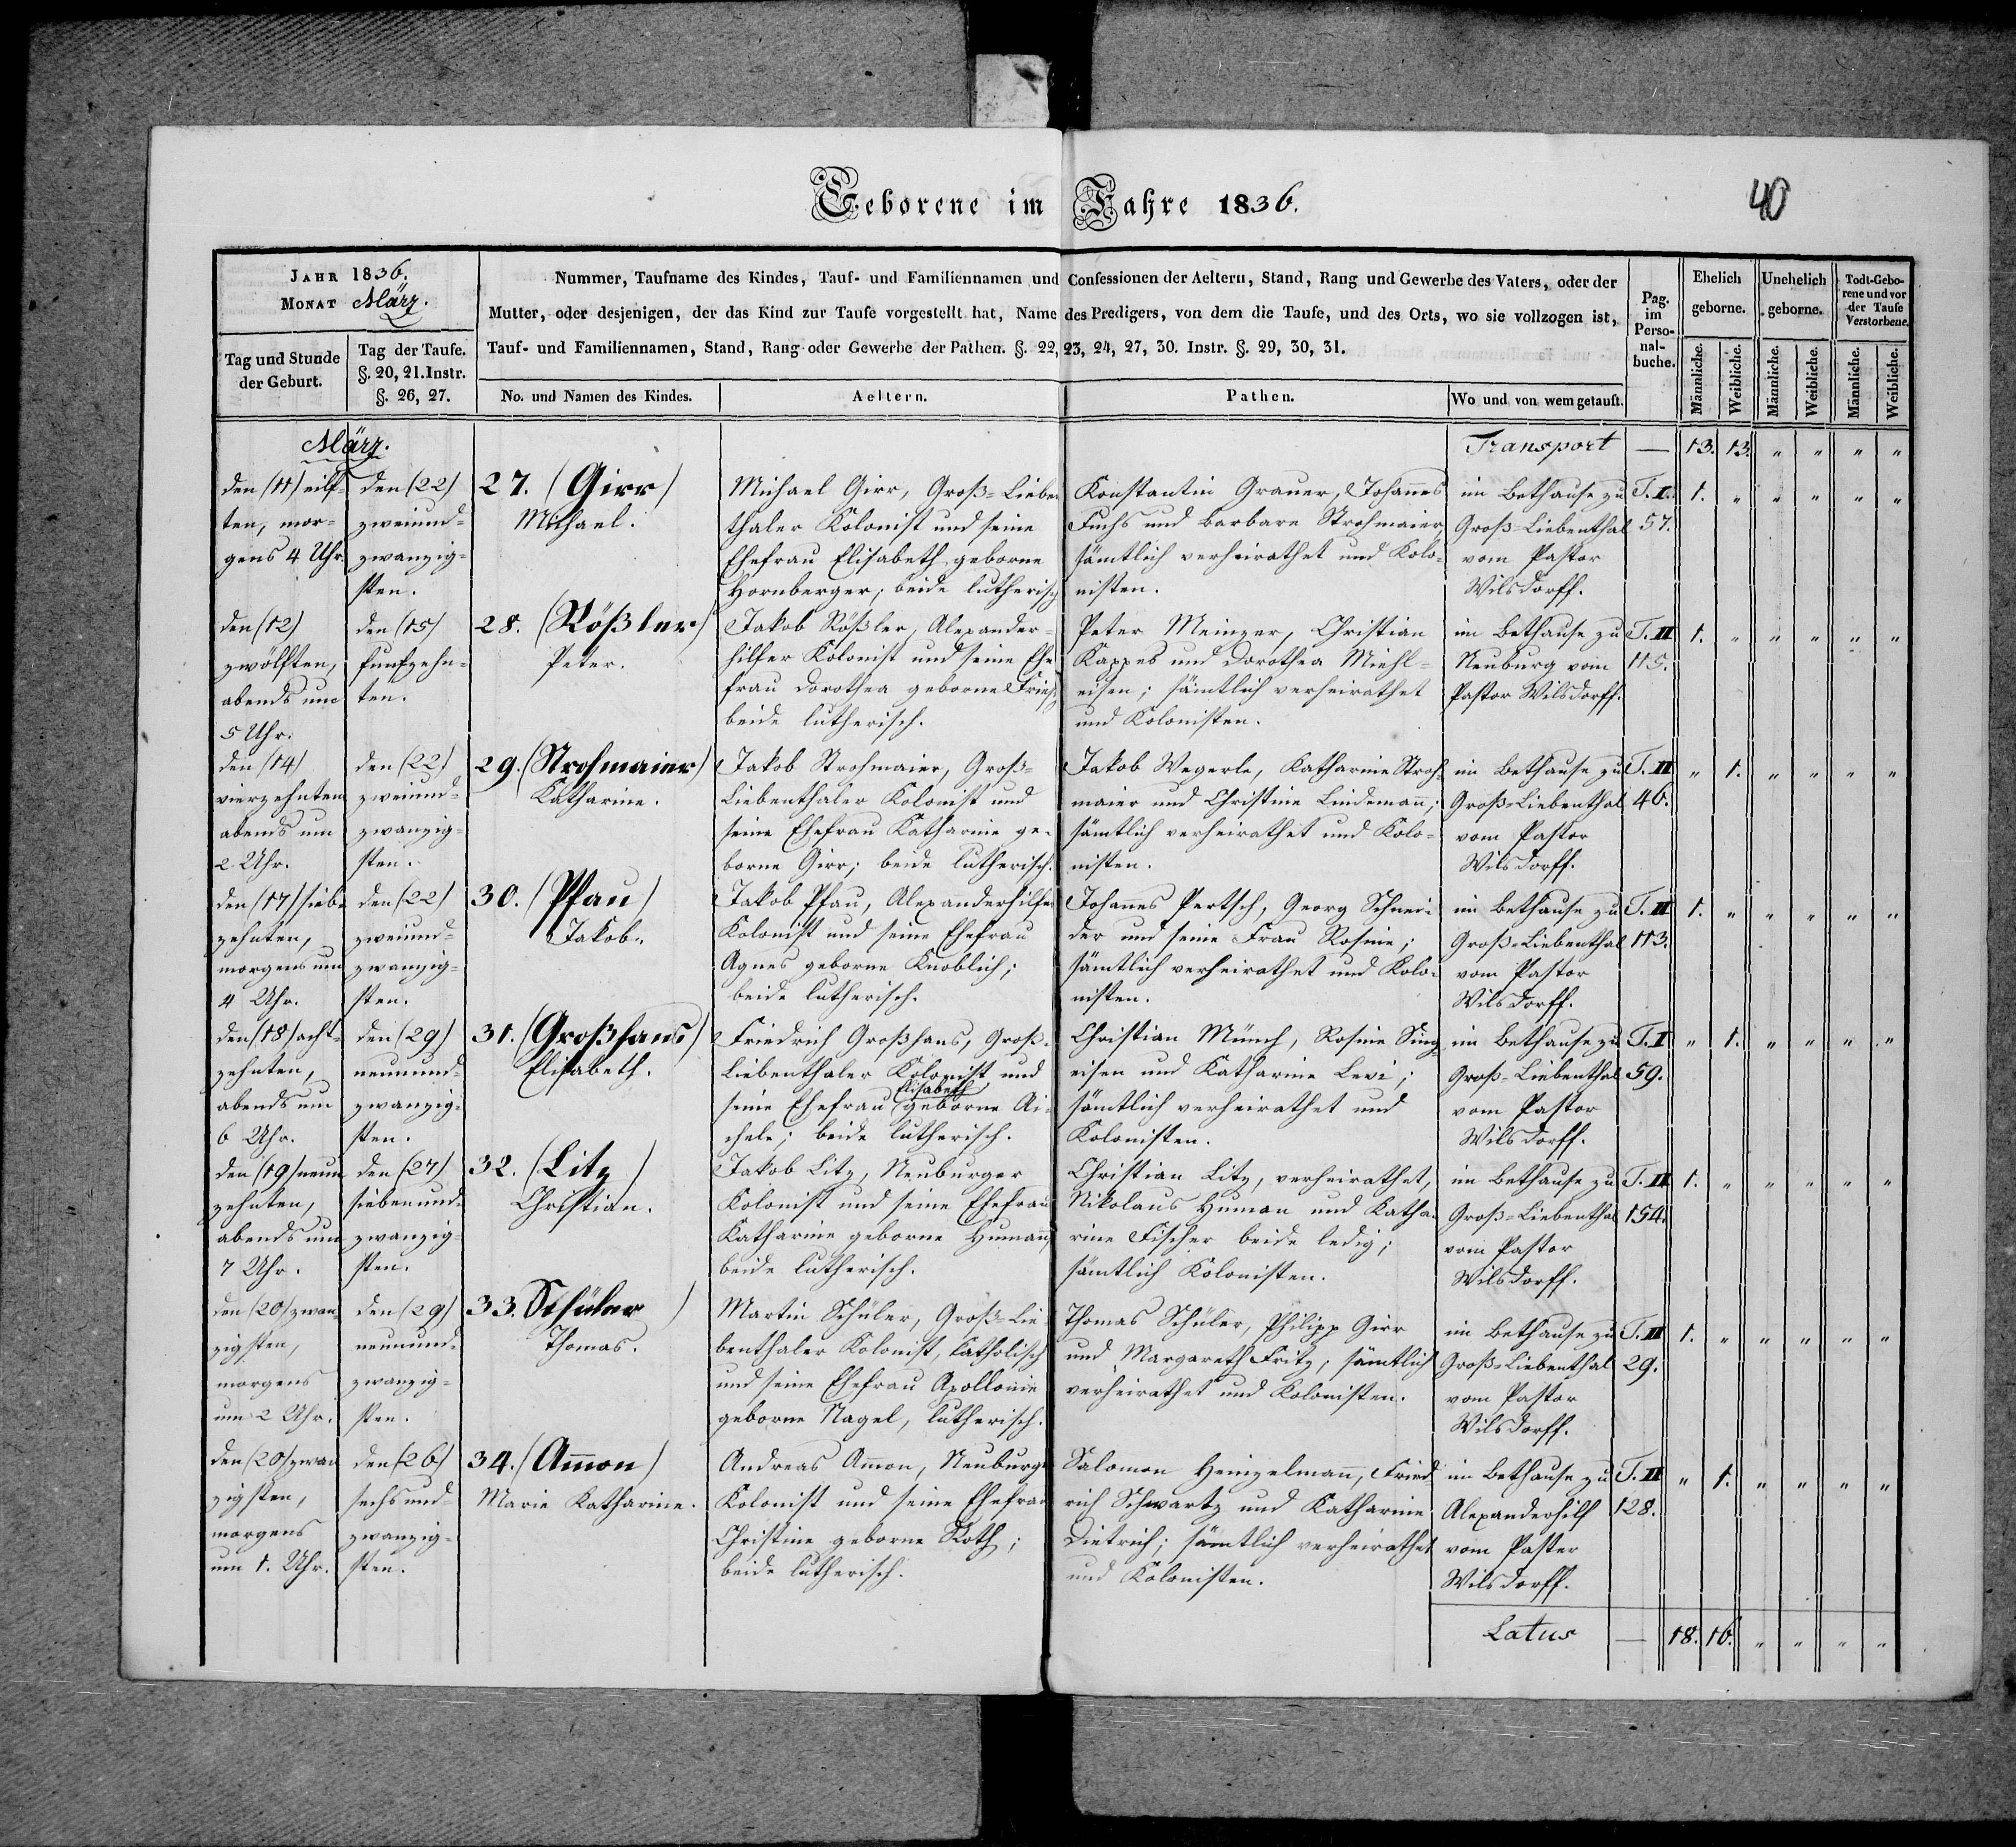 Geborene im Jahre 1836.
40
JAHR 1836.
MONAT März.
Tag und Stunde
der Geburt.
Tag der Taufe.
§. 20, 21. Instr.
§. 26, 27.
Nummer, Taufname des Kindes, Tauf- und Familiennamen und Confessionen der Aeltern, Stand, Rang und Gewerbe des Vaters, oder der
Mutter, oder desjenigen, der das Kind zur Taufe vorgestellt hat, Name des Predigers, von dem die Taufe, und des Orts, wo sie vollzogen ist,
Tauf- und Familiennamen, Stand, Rang oder Gewerbe der Pathen. §. 22, 23, 24, 27, 30. Instr. §. 29, 30, 31.
No. und Namen des Kindes.
Aeltern.
Pathen.
Wo und von wem getauft.
Pag.
im
Perso-
nal-
buche.
Ehelich
geborne.
Unehelich
geborne.
Todt-Gebo-
rene und vor
der Taufe
Verstorbene.
Männliche.
Weibliche.
Männliche.
Weibliche.
Männliche.
Weibliche.
März.
Transport — 13. 13. " " " "
den (11) eilf-
ten, mor-
gens 4 Uhr.
den (22)
zweiund-
zwanzig-
sten.
27. (Girr)
Michael.
Michael Girr, Groß-Lieben
thaler Kolonist und seine
Ehefrau Elisabeth geborne
Hornberger; beide lutherisch
Konstantin Grauer, Johannes
Fuchs und Barbara Strohmaier
sämtlich verheirathet und Kolo-
nisten.
im Bethause zu
Groß-Liebenthal
vom Pastor
Wilsdorff.
T. I.
57.
1. " " " " "
den (12)
zwölften,
abends um
5 Uhr.
den (15)
funfzehn-
ten.
28. (Rößler)
Peter.
Jakob Rößler, Alexander-
hilfer Kolonist und seine Ehe
frau Dorothea geborne Frieß;
beide lutherisch.
Peter Meinzer, Christian
Kappes und Dorothea Miehl-
eisen; sämtlich verheirathet
und Kolonisten.
im Bethause zu
Neuburg vom
Pastor Wilsdorff.
T. II
115.
1. " " " " "
den (14)
vierzehnten
abends um
2 Uhr.
den (22)
zweiund-
zwanzig-
sten.
29. (Strohmaier)
Katharine.
Jakob Strohmaier, Groß-
Liebenthaler Kolonist und
seine Ehefrau Katharine ge-
borne Girr; beide lutherisch.
Jakob Wegerle, Katharine Stroh-
maier und Christine Lindemann;
sämtlich verheirathet und Kolo-
nisten.
im Bethause zu
Groß-Liebenthal
vom Pastor
Wilsdorff.
T. II
46.
" 1. " " " "
den (17) siebe
zehnten,
morgens um
4 Uhr.
den (22)
zweiund-
zwanzig-
sten.
30. (Pfau)
Jakob.
Jakob Pfau, Alexanderhilfer
Kolonist und seine Ehefrau
Agnes geborne Knoblich;
beide lutherisch.
Johannes Pertsch, Georg Schnei-
der und seine Frau Rosine;
sämtlich verheirathet und Kolo-
nisten.
im Bethause zu
Groß-Liebenthal
vom Pastor
Wilsdorff.
T. II
113.
1. " " " " "
den (18) acht-
zehnten,
abends um
6 Uhr.
den (29)
neunund-
zwanzig-
sten.
31. (Großhans)
Elisabeth.
Friedrich Großhans, Groß-
Liebenthaler Kolonist und
Elisabeth
seine Ehefrau geborne Ai-
chele; beide lutherisch.
Christian Münch, Rosine Sing-
eisen und Katharine Levi;
sämtlich verheirathet und
Kolonisten.
im Bethause zu
Groß-Liebenthal
vom Pastor
Wilsdorff.
T. I
59.
" 1. " " " "
den (19) neun
zehnten,
abends um
7 Uhr.
den (27)
siebenund-
zwanzig-
sten.
32. (Litz)
Christian.
Jakob Litz, Neuburger
Kolonist und seine Ehefrau
Katharine geborne Human;
beide lutherisch.
Christian Litz, verheirathet,
Nikolaus Human und Katha-
rine Fischer beide ledig;
sämtlich Kolonisten.
im Bethause zu
Groß-Liebenthal
vom Pastor
Wilsdorff.
T. II
154.
1. " " " " "
den (20) zwan
zigsten,
morgens
um 2 Uhr.
den (29)
neunund-
zwanzig-
sten.
33. Schüler)
Thomas.
Martin Schüler, Groß-Lie-
benthaler Kolonist, katholisch
und seine Ehefrau Apollonie
geborne Nagel, lutherisch.
Thomas Schüler, Philipp Girr
und Margareth Fritz, sämtlich
verheirathet und Kolonisten.
im Bethause zu
Groß-Liebenthal
vom Pastor
Wilsdorff.
T. II
29.
1. " " " " "
den (20) zwan
zigsten,
morgens
um 1. Uhr.
den (26)
sechsund-
zwanzig-
sten.
34. (Amon)
Marie Katharine.
Andreas Amon, Neuburger
Kolonist und seine Ehefrau
Christine geborne Roth;
beide lutherisch.
Salomon Heinzelmann, Fried-
rich Schwartz und Katharine
Dietrich; sämtlich verheirathet
und Kolonisten.
im Bethause zu
Alexanderhilf
vom Pastor
Wilsdorff.
T. II
128.
" 1. " " " "
Latus — 18. 16. " " " "